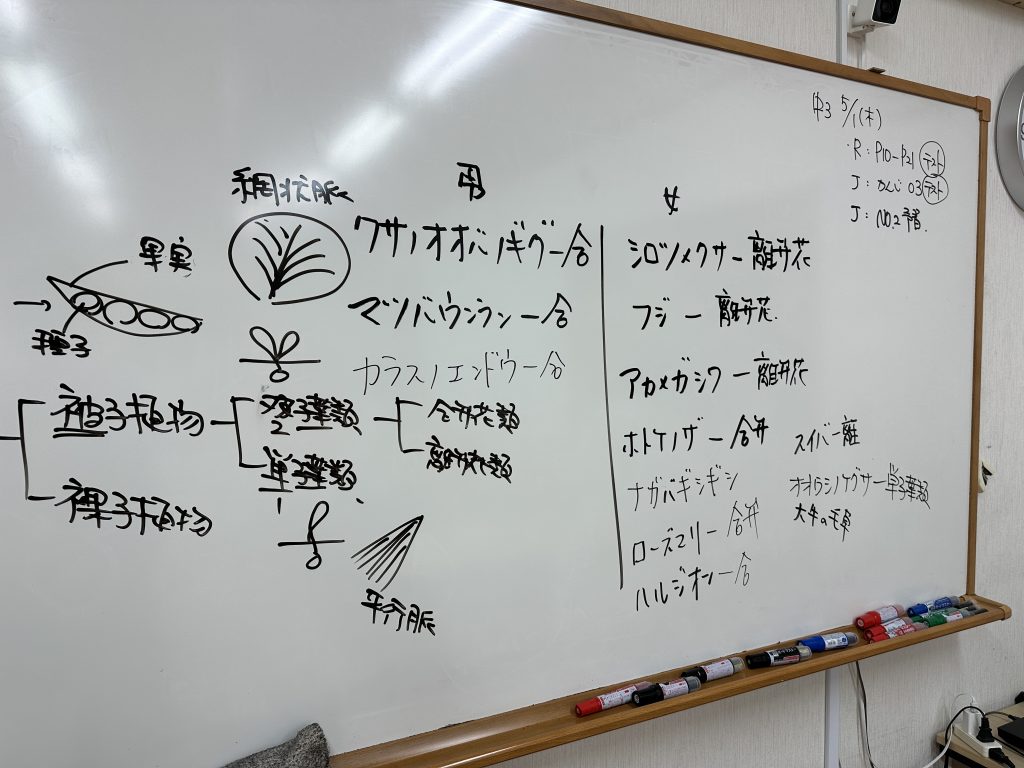 中3 5/1(木)
R: P10-P21 テスト
J: かんじ 03 テスト
J: NO.2 予習.
網状脈
果実
種子
被子植物
双子葉類
2
合弁花類
離弁花類
単子葉類
1
裸子植物
平行脈
男
クサノオオバノギクー合
マツバウンランー合
カラスノエンドウー合
女
シロツメクサー離弁花
フジー離弁花.
アカメガシワー離弁花
ホトケノザー合弁
ナガバギシギシ
ローズマリー合弁
ハルジオンー合
スイバー離
オオウシノケグサー単子葉類
大牛の毛草